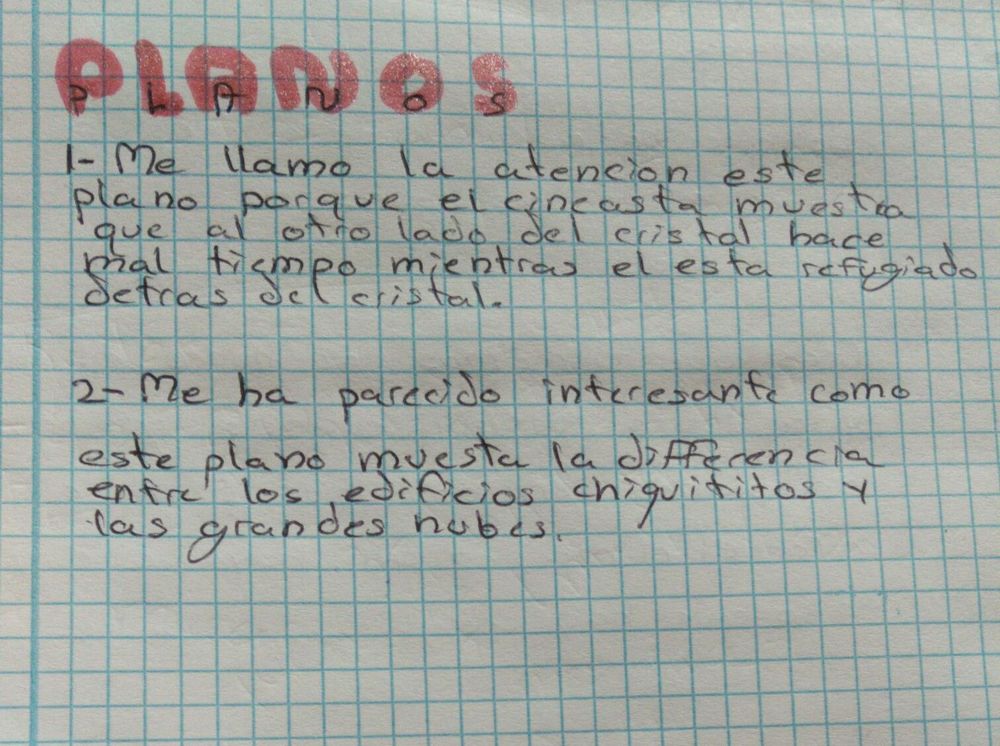 PLANOS
P L A N O S
1- Me llamo la atencion este
plano porque el cineasta muestra
que al otro lado del cristal hace
mal tiempo mientras el esta refugiado
detras del cristal.
2- Me ha parecido interesante como
este plano muesta la differencia
entre los edificios chiquititos y
las grandes nubes.